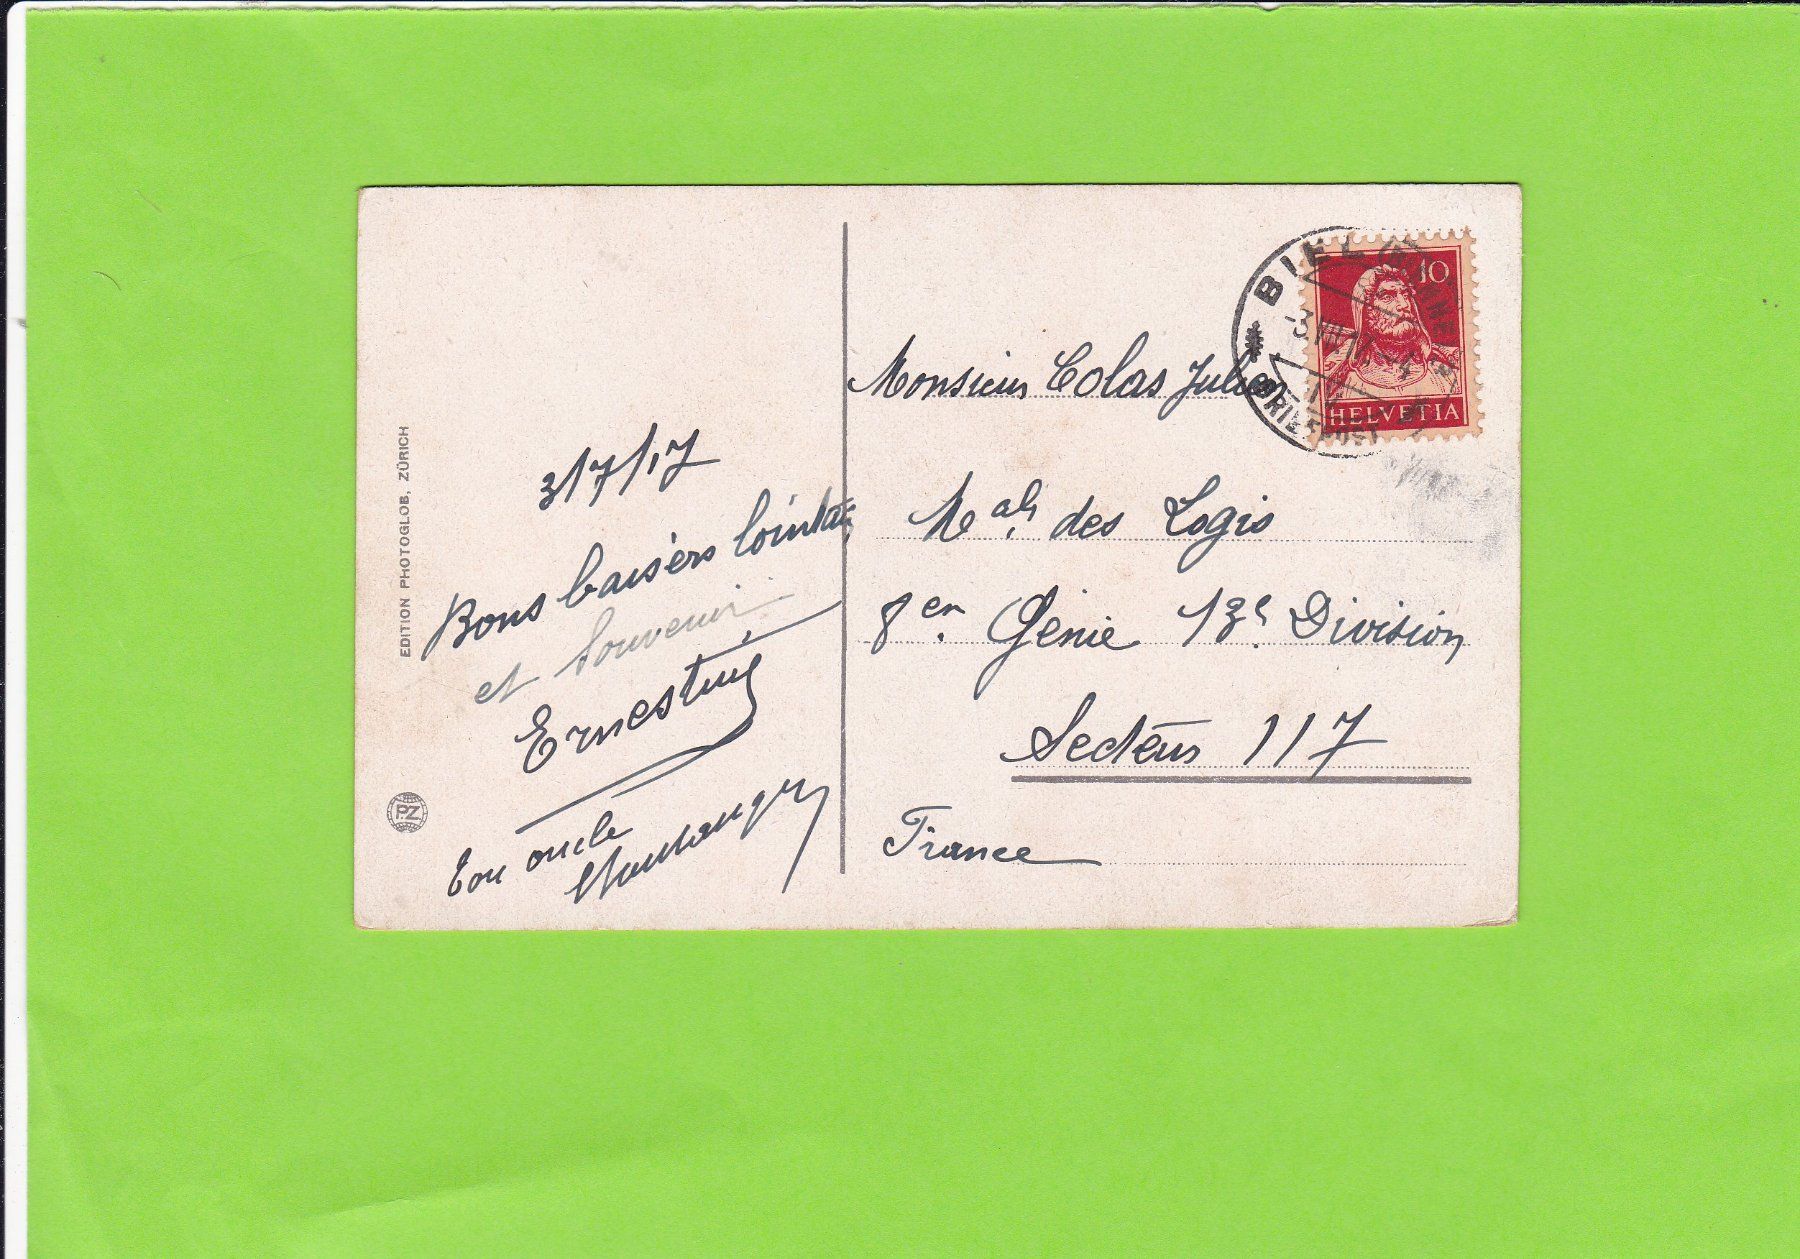 EDITION PHOTOGLOB, ZÜRICH
P.Z
3/7/17
Bons baisers lointains
et souvenir
Ernestine
Ton oncle
Monsieur Colas Julien
Mals. des Logis
8en. Génie 13e. Division
Secteur 117
France
BIEL (BIENNE)
-3.VII.17.
BRIEFPOST
10
HELVETIA